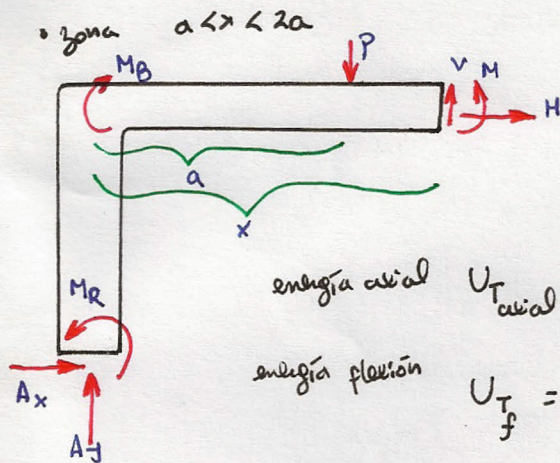 • zona a < x < 2a
P
M_B
V M
H
a
x
M_R
energía axial U_T axial
energía flexión U_T f =
A_x
A_y